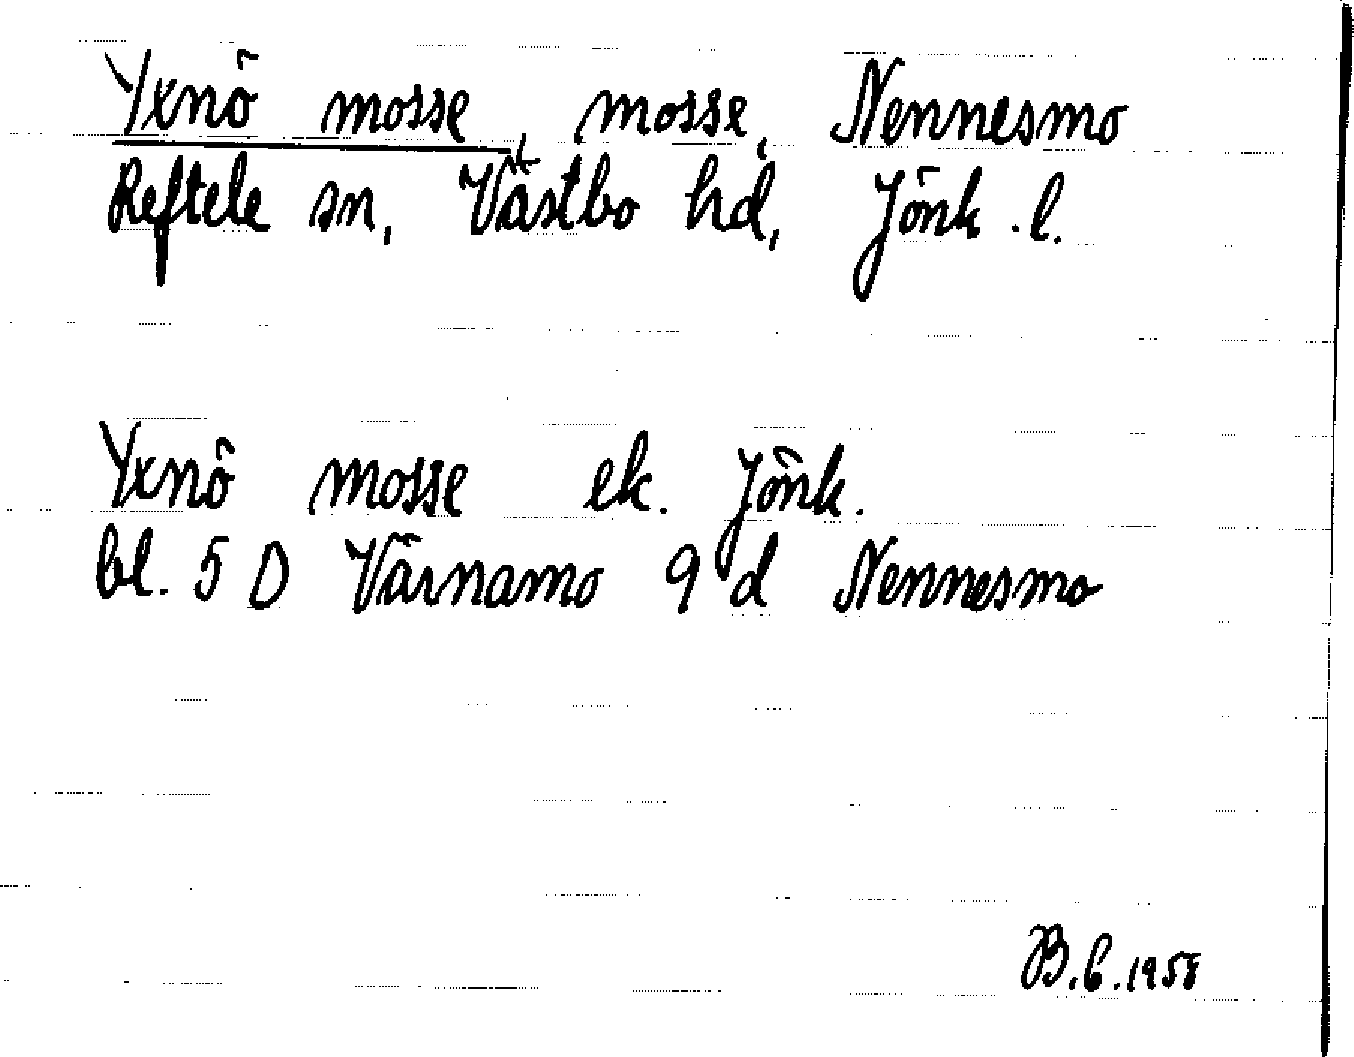 Yxnö mosse, mosse, Nennesmo
Reftele sn, Västbo hd, Jönk.l.
Yxnö mosse ek. Jönk.
bl. 5 D Värnamo 9 d Nennesmo
B.G.1958